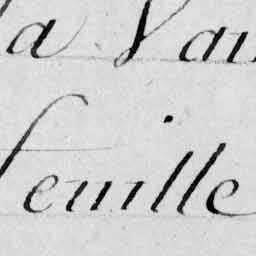 la Vai
feuille